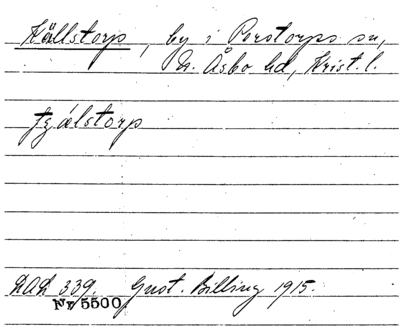 Källstorp, by i Perstorps sn,
N. Åsbo hd, Krist. l.
tҙælstorp
DAL 339. Gust. Billing 1915.
Nr 5500